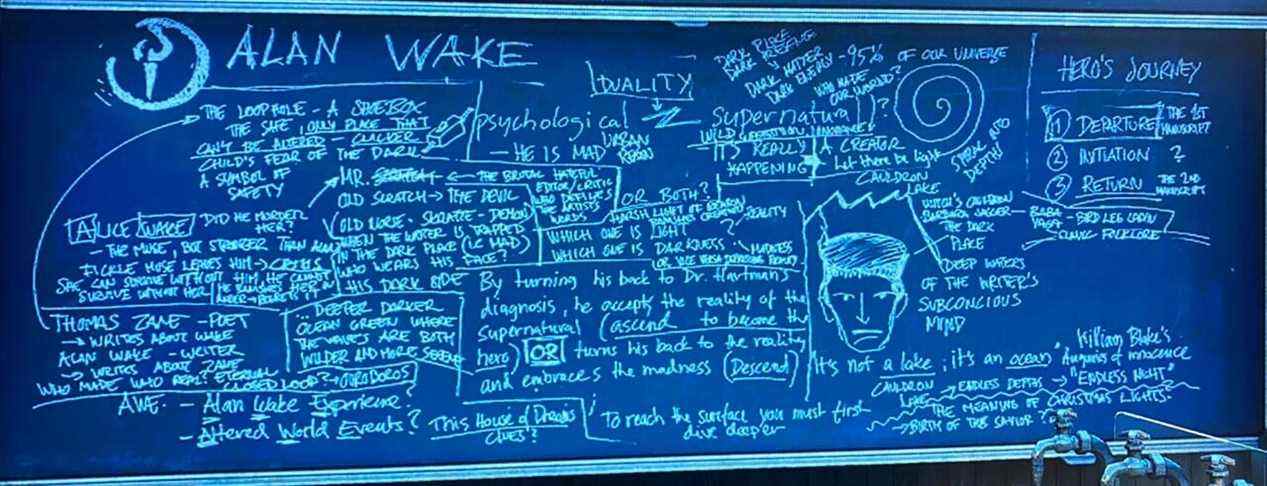 ALAN WAKE
THE LOOPHOLE - A SHOEBOX
THE SAFE, ONLY PLACE THAT
CAN'T BE ALTERED
CLICKER
CHILD'S FEAR OF THE DARK
A SYMBOL OF
SAFETY
ALICE WAKE
DID HE MURDER
HER?
- THE MUSE, BUT STRONGER THAN ALAN
FICKLE MUSE LEAVES HIM → CRISIS
SHE CAN SURVIVE WITHOUT HIM, HE CANNOT
SURVIVE WITHOUT HER
HE BANISHES HER IN
THOMAS ZANE - POET
→ WRITES ABOUT WAKE
ALAN WAKE - WRITER
→ WRITES ABOUT ZANE
WHO MADE WHO REAL? ETERNAL
CLOSED LOOP? → OUROBOROS
AWE - Alan Wake Experience?
- Altered World Events?
This House of Dreams
CLUES?
DUALITY
psychological
- HE IS MAD
URBAN
MR. SCRATCH ← THE BRUTAL HATEFUL
EDITOR/CRITIC
WHO DEFILES
THE ARTIST'S
WORDS
OLD SCRATCH → THE DEVIL
OLD NORSE - SKRATTE - DEMON
WHEN THE WRITER IS TRAPPED
IN THE DARK PLACE (IE MAD)
WHO WEARS HIS FACE?
HIS DARK SIDE
... DEEPER DARKER
OCEAN GREEN WHERE
THE WAVES ARE BOTH
WILDER AND MORE SERENE
DARK PLACE
DARK PRESENCE
DARK MATTER
DARK ENERGY - 95% OF OUR UNIVERSE
WHO MADE
OUR WORLD?
supernatural?
WILD SUPERSTITION, IGNORANCE?
IT'S REALLY
HAPPENING
A CREATOR
Let there be light
SPIRAL INTO
DEPTHS
OR BOTH?
HARSH LIGHT OF REASON
REALITY
WHICH ONE IS LIGHT
WHICH ONE IS DARKNESS?
MADNESS
OR VICE VERSA
By turning his back to Dr. Hartman's
diagnosis, he accepts the reality of the
supernatural (ascend to become the
hero) OR turns his back to the reality
and embraces the madness (Descend)
To reach the surface you must first
dive deeper
CAULDRON
LAKE
WITCH'S CAULDRON
BARBARA JAGGER
THE DARK
PLACE
BABA
YAGA
- BIRD LEG CABIN
SLAVIC FOLKLORE
DEEP WATERS
OF THE WRITER'S
SUBCONCIOUS
MIND
It's not a lake, it's an ocean
William Blake's
Auguries of innocence
"ENDLESS NIGHT"
CAULDRON
LAKE
→ ENDLESS DEPTHS →
THE MEANING OF CHRISTMAS LIGHTS.
→ BIRTH OF THE SAVIOR?
HERO'S JOURNEY
1 DEPARTURE
THE 1ST
MANUSCRIPT
2 INITIATION ?
3 RETURN
THE 2ND
MANUSCRIPT